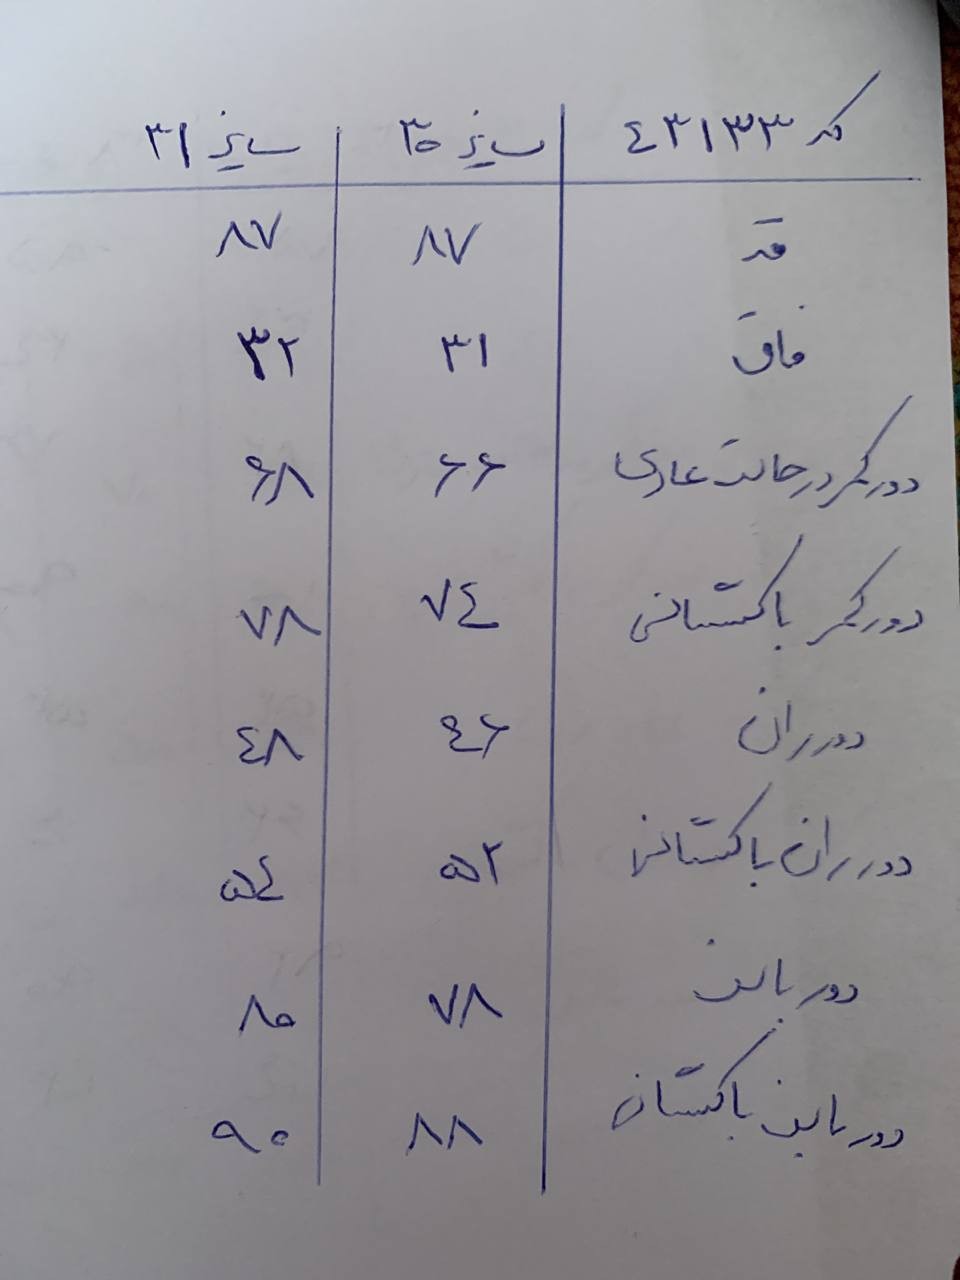 کد ۴۳۱۳۳ سایز ۳۰ سایز ۳۱
قد ۸۷ ۸۷
فاق ۳۱ ۳۲
دور کمر در حالت عادی ۶۶ ۶۸
دور کمر باکستانی ۷۴ ۷۸
دور ران ۴۶ ۴۸
دور ران باکستانی ۵۲ ۵۴
دور باسن ۷۸ ۸۰
دور باسن باکستانی ۸۸ ۹۰